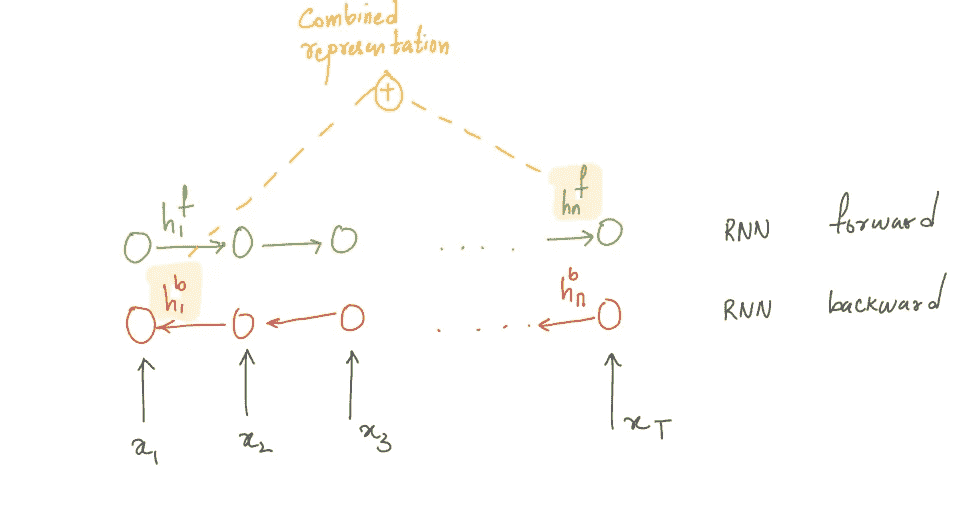 Combined
representation
+
h₁ᶠ
hₙᶠ
RNN forward
. . . .
h₁ᵇ
hₙᵇ
RNN backward
. . . . .
x₁
x₂
x₃
x_T